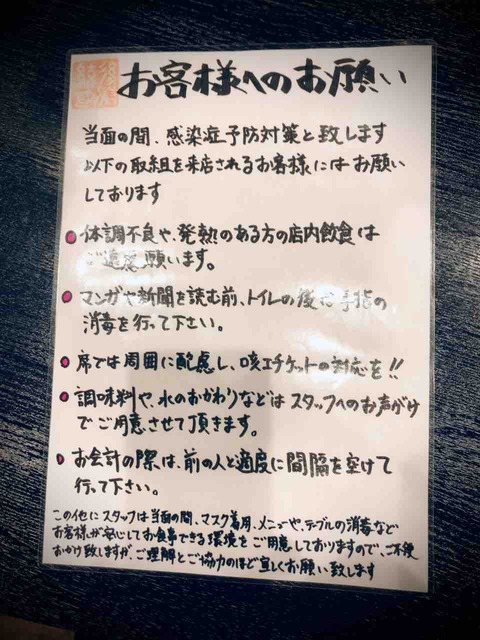 お客様へのお願い
当面の間、感染症予防対策と致します
以下の取組を来店されるお客様にはお願い
しております
体調不良や、発熱のある方の店内飲食は
ご遠慮願います。
マンガや新聞を読む前、トイレの後は手指の
消毒を行って下さい。
席では周囲に配慮し、咳エチケットの対応を!!
調味料や、水のおかわりなどはスタッフへのお声がけ
でご用意させて頂きます。
お会計の際は、前の人と適度に間隔を空けて
行って下さい。
この他にスタッフは当面の間、マスク着用、メニューや、テーブルの消毒など
お客様が安心してお食事できる環境をご用意しておりますので、ご不便
おかけ致しますが、ご理解とご協力のほど宜しくお願い致します